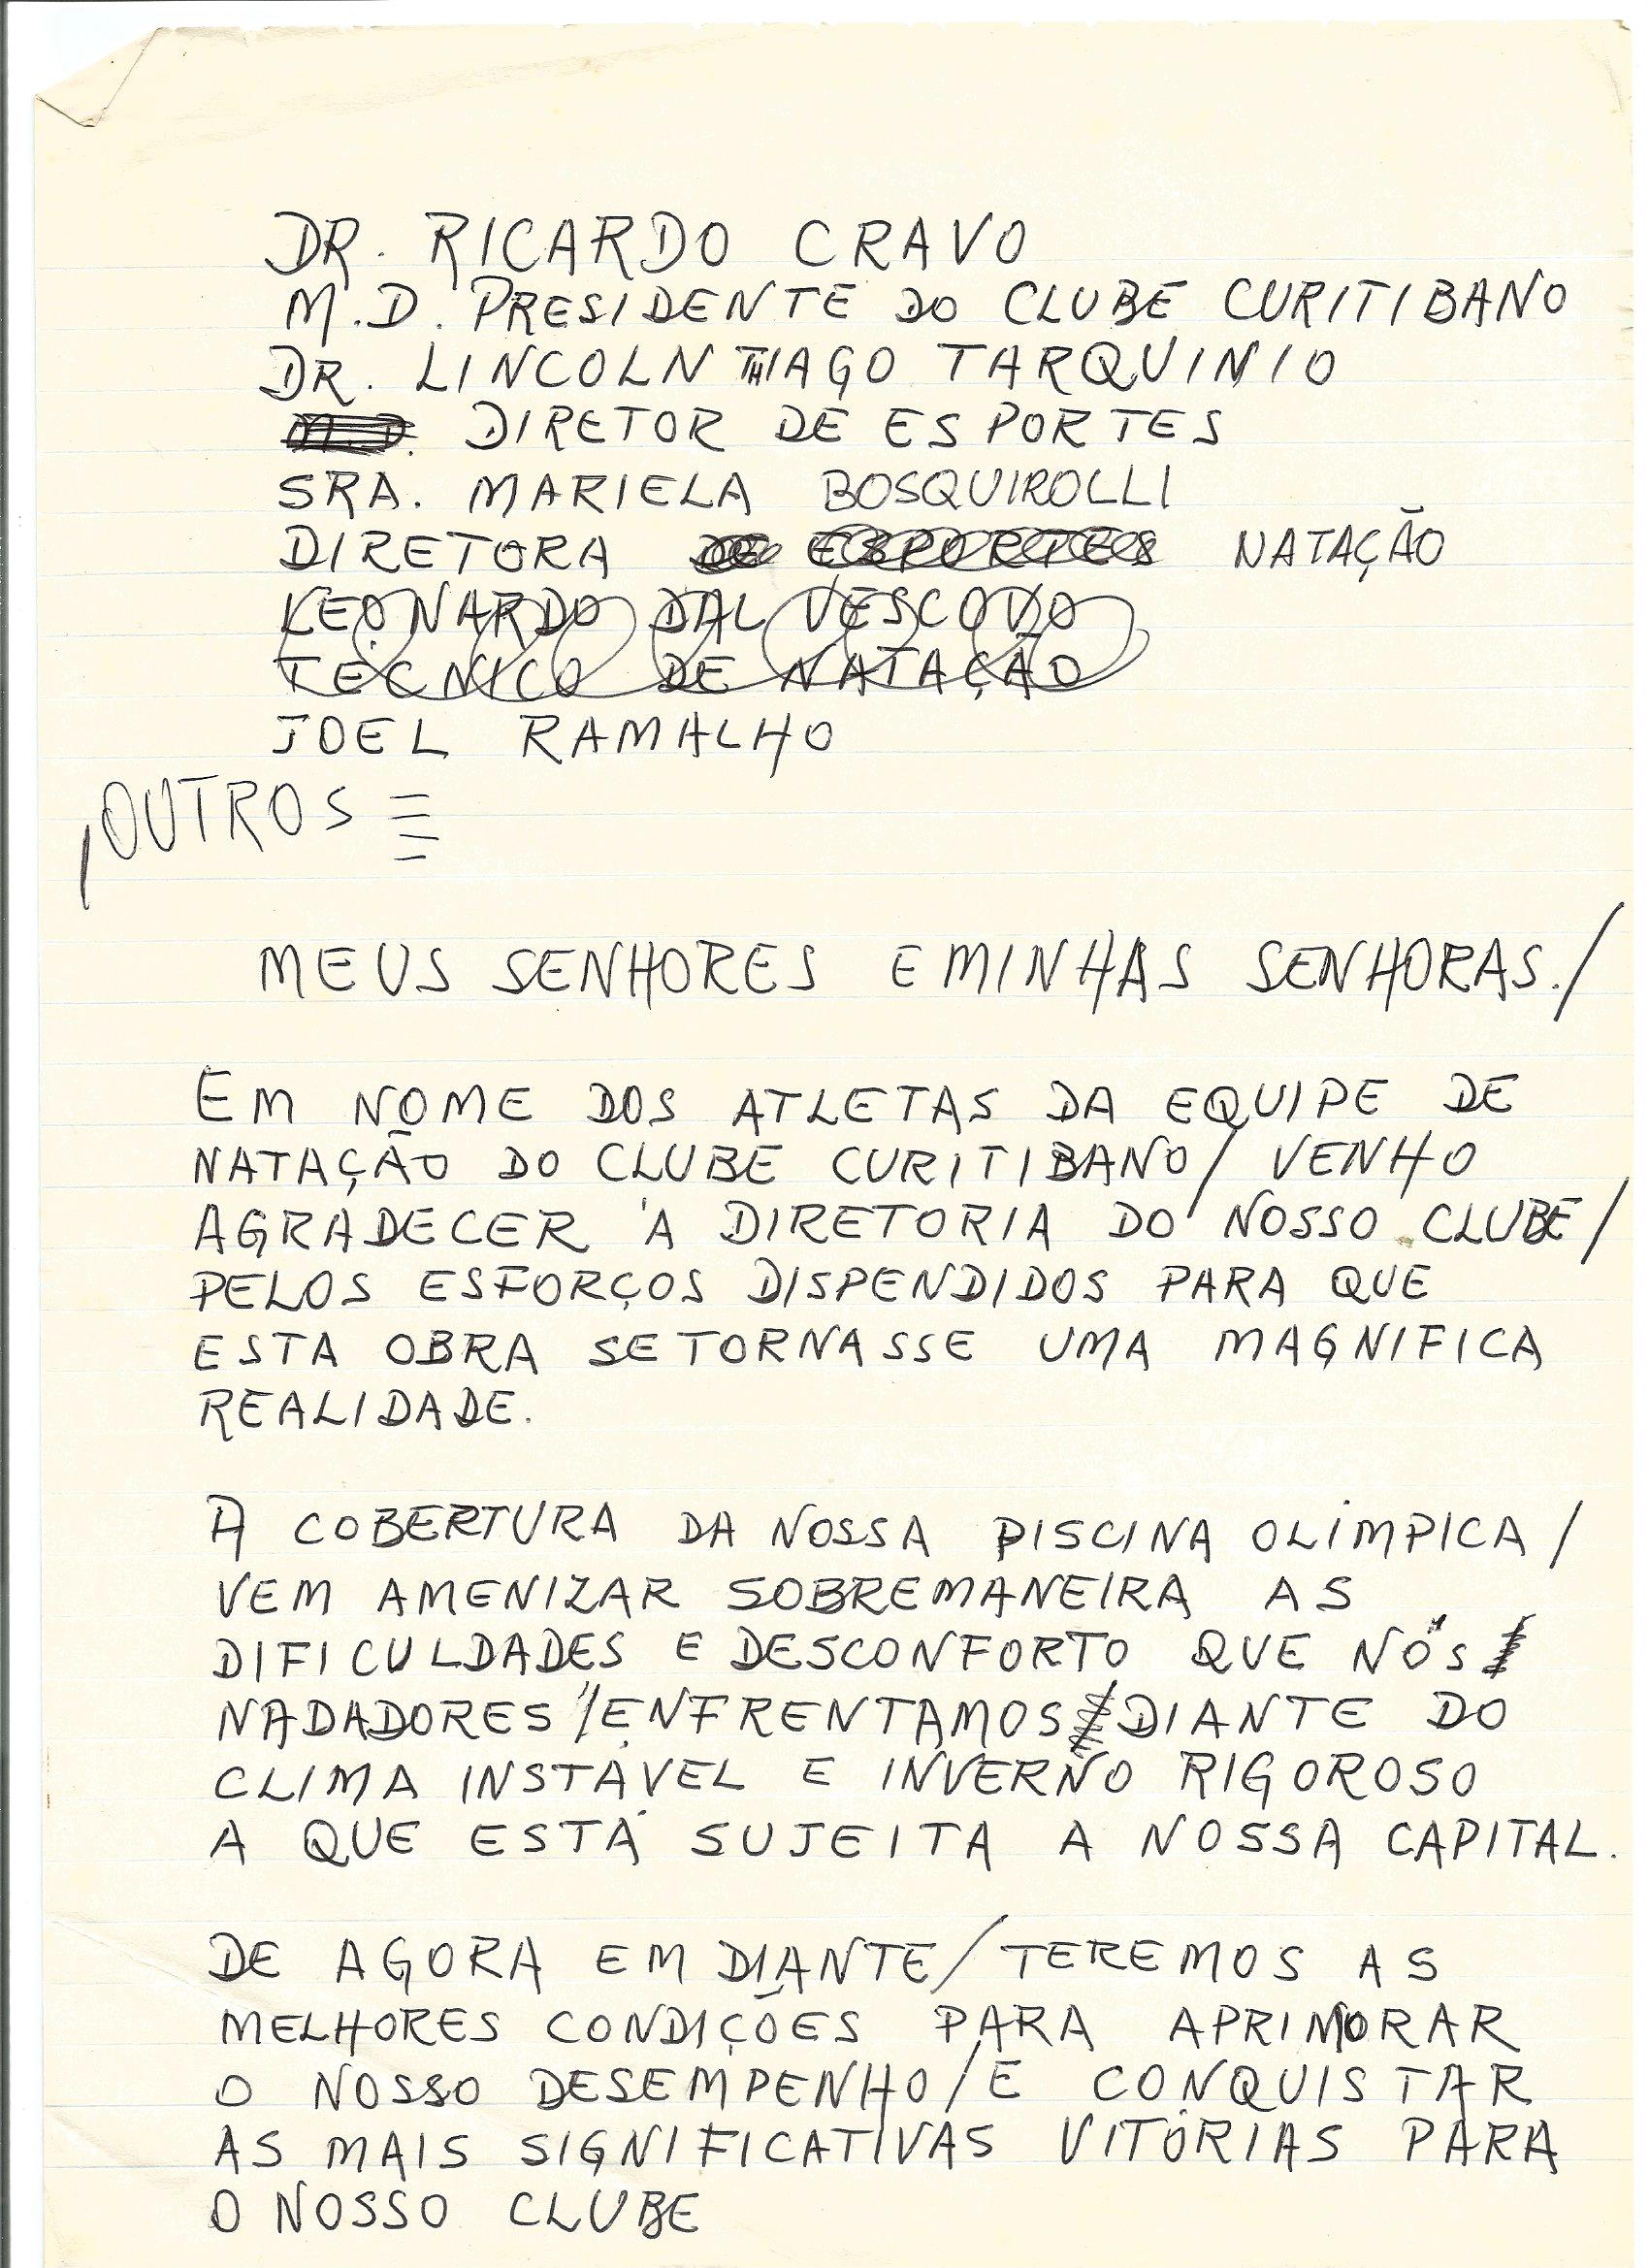 DR. RICARDO CRAVO
M.D. PRESIDENTE DO CLUBE CURITIBANO
DR. LINCOLN THIAGO TARQUINIO
M.D. DIRETOR DE ESPORTES
SRA. MARIELA BOSQUIROLLI
DIRETORA DE ESPORTES NATAÇÃO
LEONARDO DAL VESCOVO
TÉCNICO DE NATAÇÃO
JOEL RAMALHO
OUTROS
MEUS SENHORES E MINHAS SENHORAS./
EM NOME DOS ATLETAS DA EQUIPE DE
NATAÇÃO DO CLUBE CURITIBANO/ VENHO
AGRADECER À DIRETORIA DO NOSSO CLUBE/
PELOS ESFORÇOS DISPENDIDOS PARA QUE
ESTA OBRA SE TORNASSE UMA MAGNIFICA
REALIDADE.
A COBERTURA DA NOSSA PISCINA OLÍMPICA/
VEM AMENIZAR SOBREMANEIRA AS
DIFICULDADES E DESCONFORTO QUE NÓS
NADADORES"/ENFRENTAMOS DIANTE DO
CLIMA INSTÁVEL E INVERNO RIGOROSO
A QUE ESTÁ SUJEITA A NOSSA CAPITAL.
DE AGORA EM DIANTE/TEREMOS AS
MELHORES CONDIÇÕES PARA APRIMORAR
O NOSSO DESEMPENHO/E CONQUISTAR
AS MAIS SIGNIFICATIVAS VITÓRIAS PARA
O NOSSO CLUBE